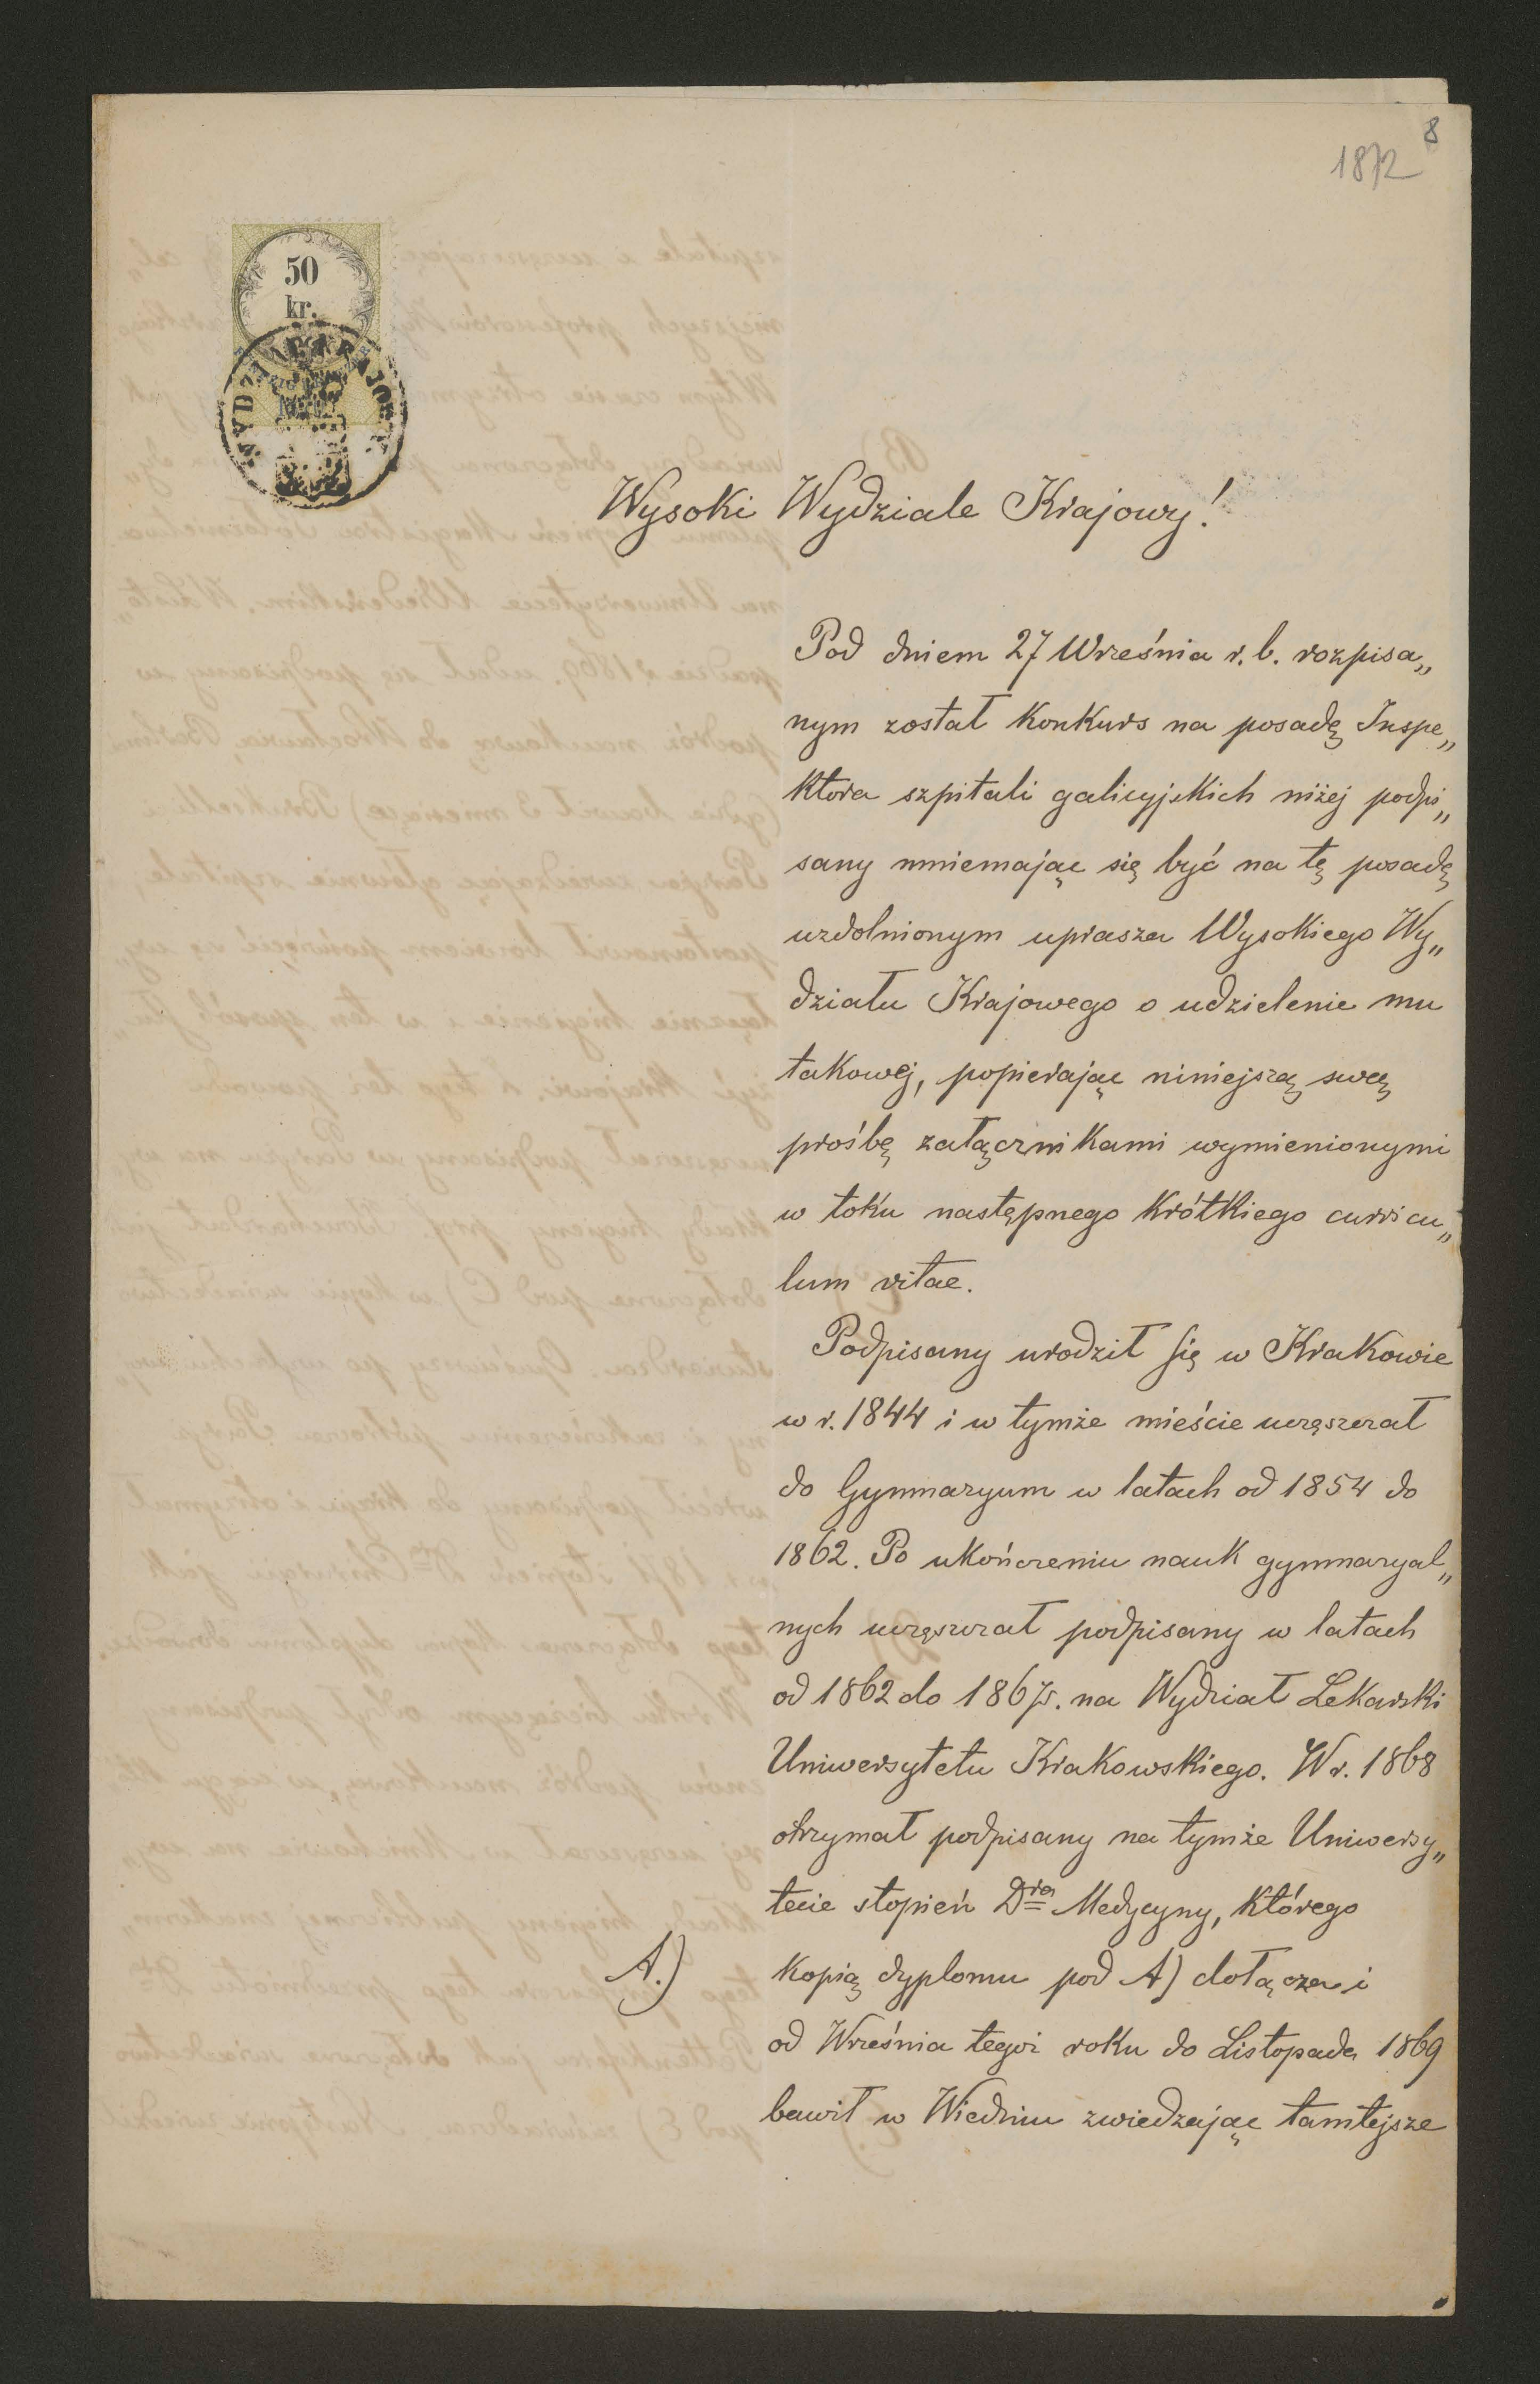 8
1872
50
kr.
WYDZIAŁ KRAJOWY
Wysoki Wydziale Krajowy!
Pod dniem 27 Września r. b. rozpisa„
nym został Konkurs na posadę Inspe„
Ktora szpitali galicyjskich niżej podpi„
sany mniemając się być na tę posadę
uzdolnionym uprasza Wysokiego Wy„
działu Krajowego o udzielenie mu
takowej, popierając niniejszą swą
prośbę załącznikami wymienionymi
w toku następnego Krótkiego curricu„
lum vitae.
Podpisany urodził się w Krakowie
w r. 1844 i w tymże mieście uczęszczał
do Gymnazyum w latach od 1854 do
1862. Po ukończeniu nauk gymnazyal„
nych uczęszczał podpisany w latach
od 1862 do 1867 r. na Wydział Lekarski
Uniwersytetu Krakowskiego. W r. 1868
otrzymał podpisany na tymże Uniwersy„
tecie stopień Dra Medycyny, Którego
A.) Kopią dyplomu pod A) dołącza i
od Września tegoż roku do Listopada 1869
bawił w Wiedniu zwiedzając tamtejsze